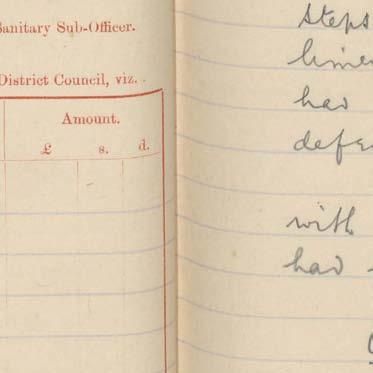 Sanitary Sub-Officer.
District Council, viz.
Amount.
£ s. d.
steps
had
with
had